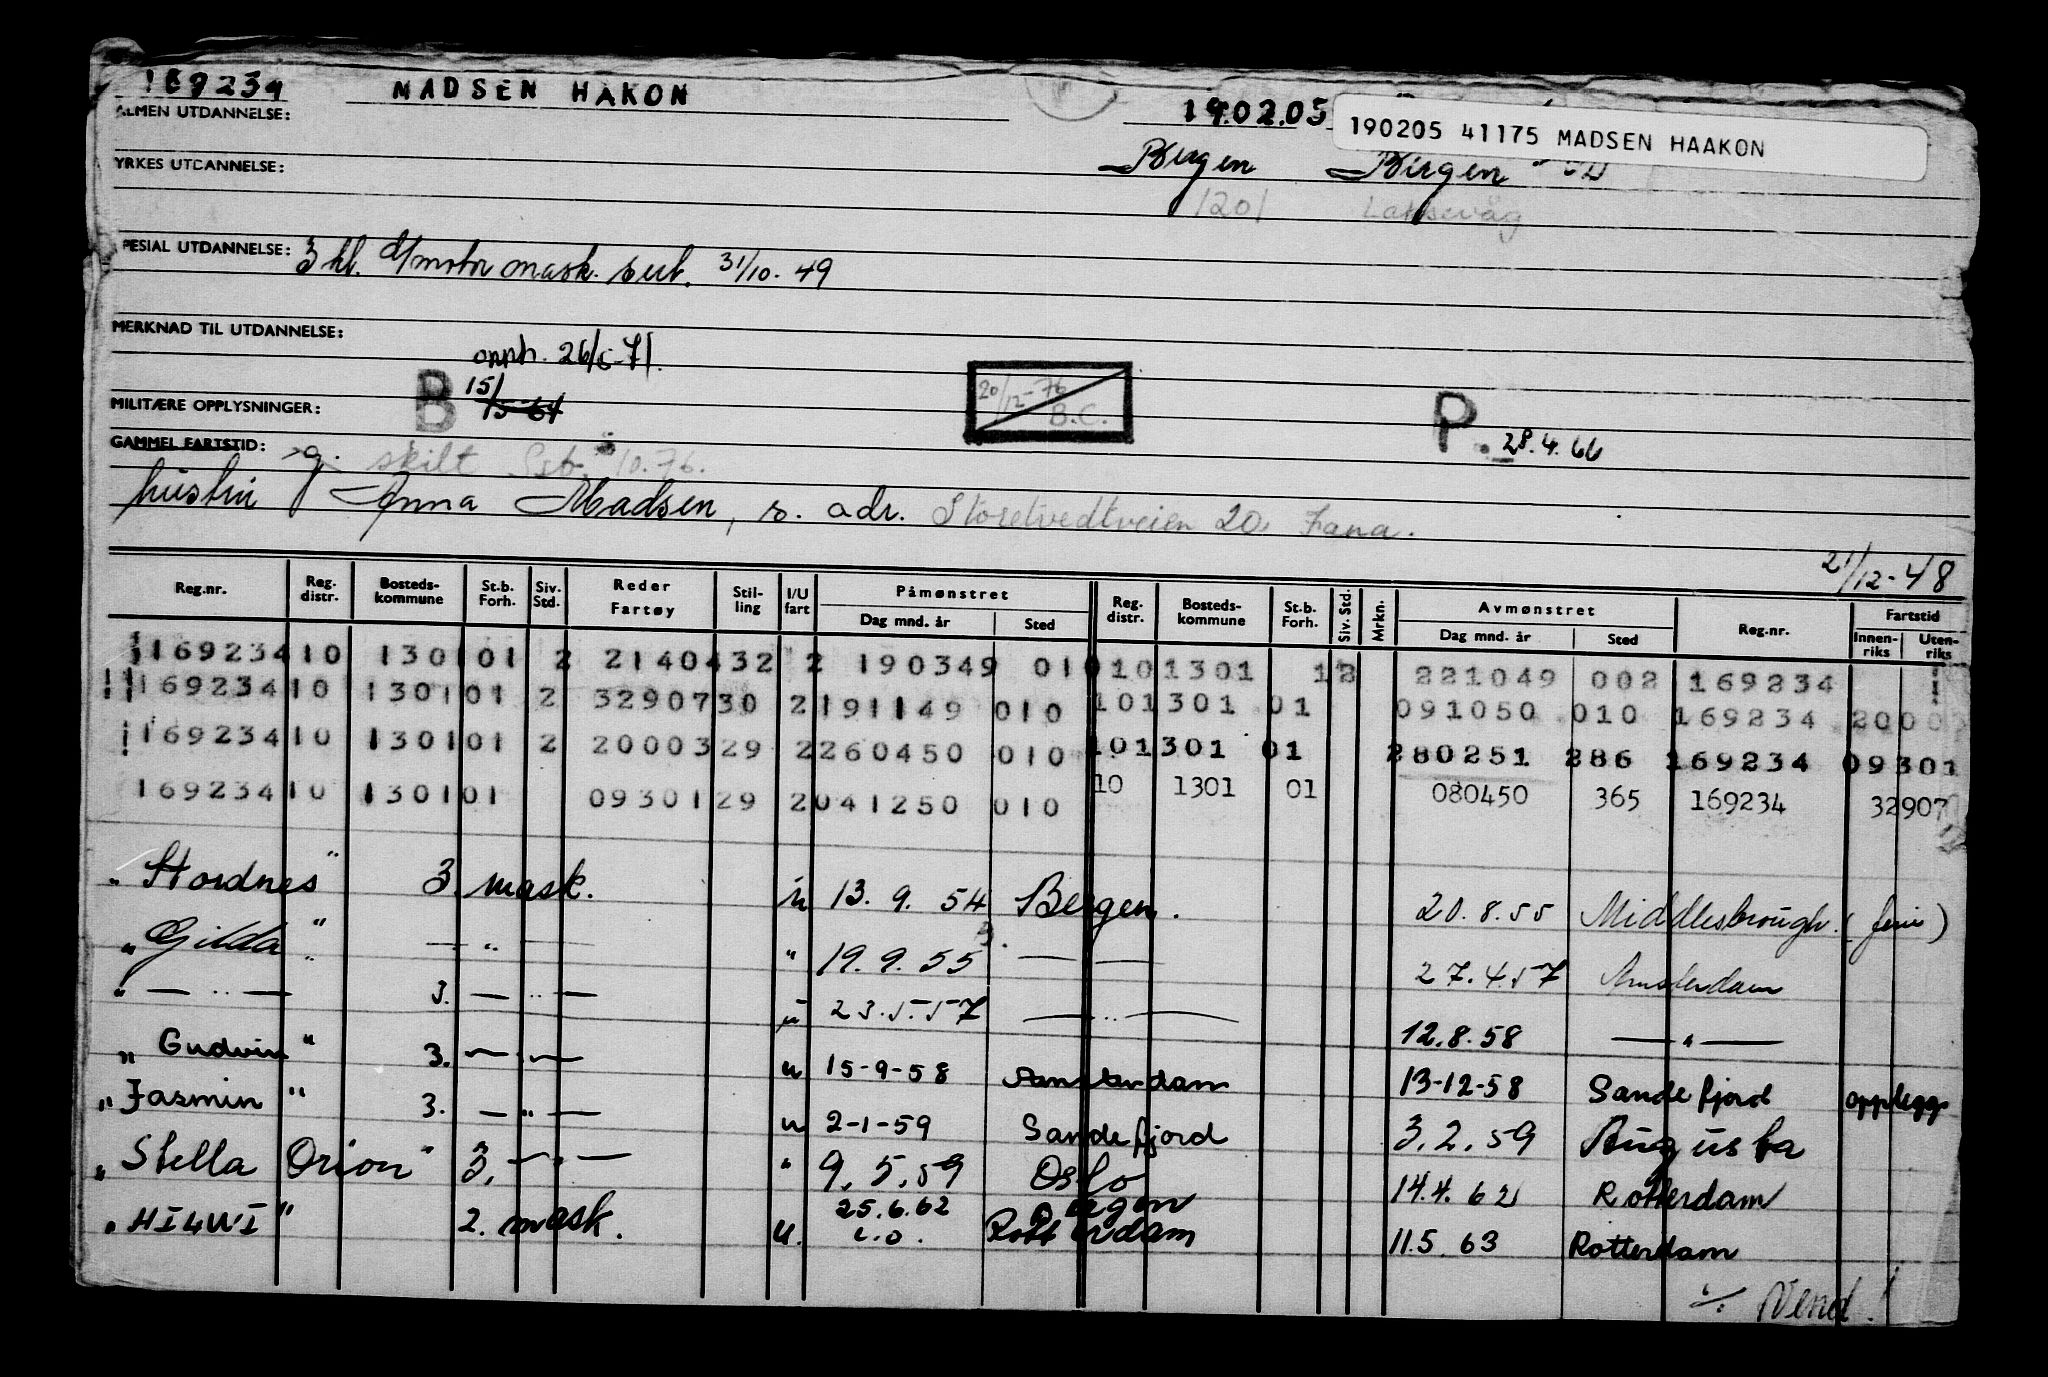 169234 MADSEN HAKON 19.02.05
190205 41175 MADSEN HAAKON
ALMEN UTDANNELSE:
Bergen Bergen
YRKES UTDANNELSE:
1201 Laksevåg
SPESIAL UTDANNELSE: 3 kl. mask. 31/10. 49
MERKNAD TIL UTDANNELSE:
opph.
B 15/ 20/12-76 B.C. P. 28.4.66
MILITÆRE OPPLYSNINGER:
GAMMEL FARTSTID: skilt 10.76.
hustru Anna Madsen, s. adr. Storetvedtveien 20, Fana.
21/12-48
Reg.nr. Reg. distr. Bosteds-kommune St.b. Forh. Siv. Std. Reder Fartøy Stil-ling I/U fart Påmønstret Dag mnd. år Sted Reg. distr. Bosteds-kommune St.b. Forh. Siv. Std. Mrkn. Avmønstret Dag mnd. år Sted Reg.nr. Fartstid Innen-riks Uten-riks
169234 10 1301 01 2 2140432 2 190349 010 101301 221049 002 169234
169234 10 1301 01 2 3290730 2 191149 010 101301 01 091050 010 169234
169234 10 1301 01 2 2000329 2 260450 010 101301 01 280251 286 169234 09301
169234 10 1301 01 0930129 2 041250 010 10 1301 01 080450 365 169234 32907
" Stordnes " 3. mask. u 13. 9. 54 Bergen. 20.8.55 Middlesbrough. (ferie)
" Gilda " — " — " 19. 9. 55 — — 27.4.57 Amsterdam
" — " — 3. — " — u 23.5.57 — " — 12.8.58 — " —
" Gudvin " 3. — " — u 15-9-58 Amsterdam 13-12-58 Sandefjord opplegg
" Jasmin " 3. — " — u 2-1-59 Sandefjord 3.2.59 Augusta
" Stella Orion " 3. — " — " 9.5.59 Oslo 14.4.62 Rotterdam
25.6.62 Bergen
" HI4WI " 2. mask. u. i.o. Rotterdam 11.5.63 Rotterdam
./. Vend!